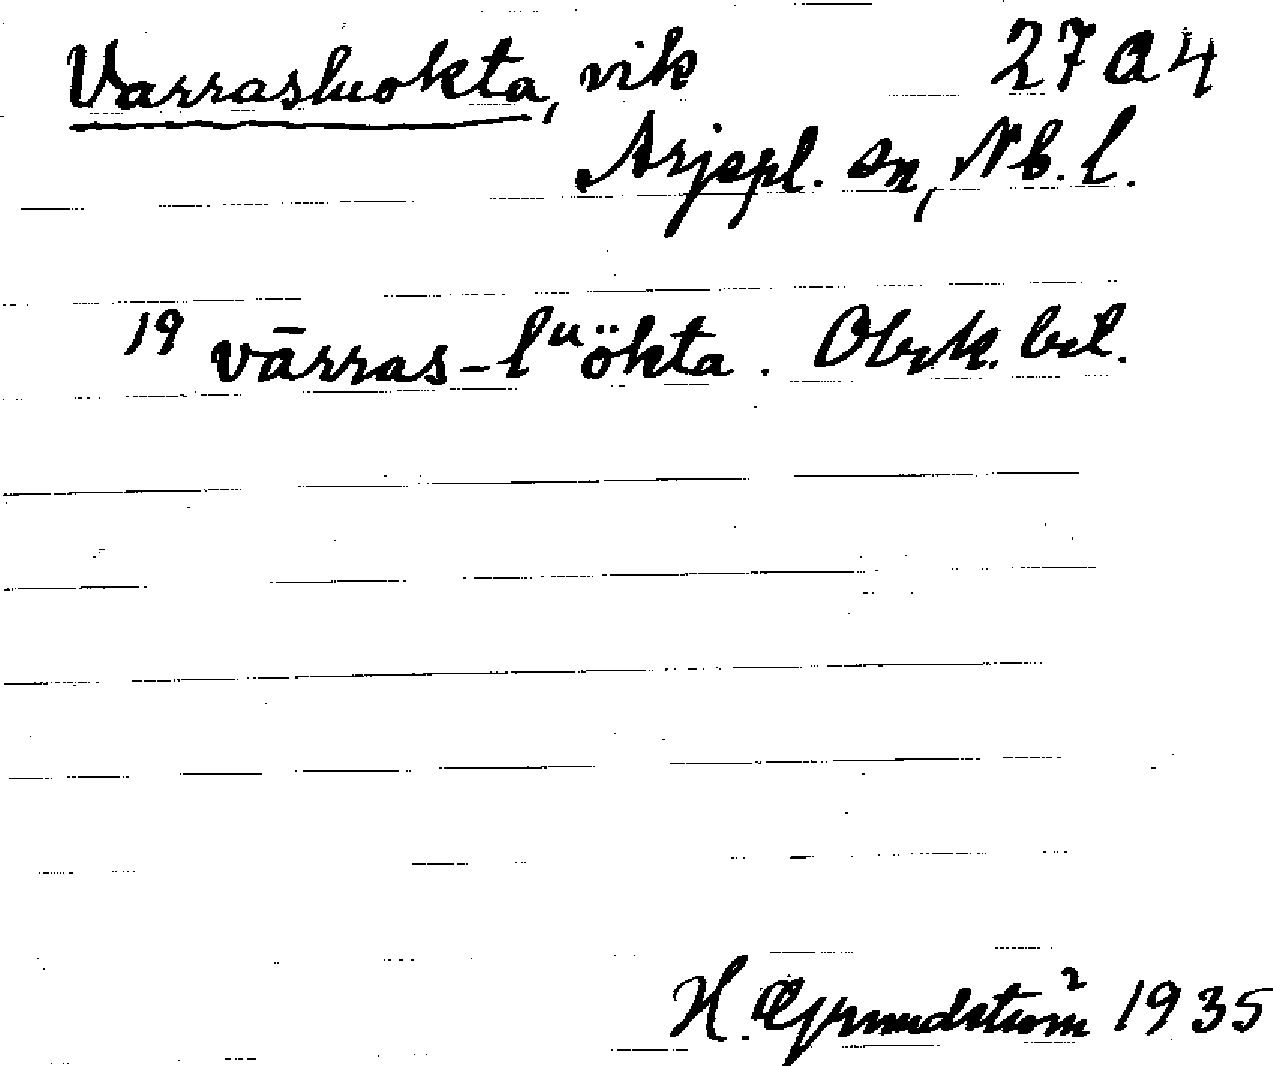 Varrasluokta, vik 27 a 4
Arjepl. sn, Nb. l.
19 vārras-lᵘökta. Obek. bel.
H. Grundström 1935